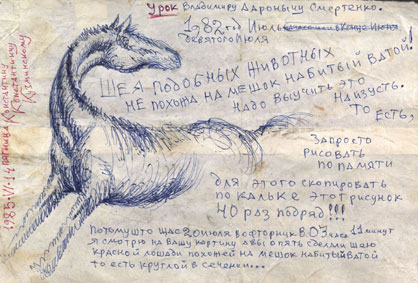 Урок Владимиру Дароныичу Смертенко.
1982 год Июль
девятого Июля
ШЕЯ ПОДОБНЫХ ЖИВОТНЫХ
НЕ ПОХОЖА НА МЕШОК НАБИТЫЙ ВАТОЙ!
НАДО ВЫУЧИТЬ ЭТО
НАИЗУСТЬ.
ТО ЕСТЬ,
ЗАПРОСТО
РИСОВАТЬ
ПО ПАМЯТИ
ДЛЯ ЭТОГО СКОПИРОВАТЬ
ПО КАЛЬКЕ ЭТОТ РИСУНОК
40 РАЗ ПОДРЯД!!!
ПОТОМУШТО ЩАС 20 ИЮЛЯ ВФТОРНИК В 03 часа 11 минут
Я СМОТРЮ НА ВАШУ КОРТИНУ А ВЫ ОПЯТЬ СДЕЛАЛИ ШЕЮ
КРАСНОЙ ЛОШАДИ ПОХОЖЕЙ НА МЕШОК НАБИТЫЙ ВАТОЙ
ТО ЕСТЬ КРУГЛОЙ В СЕЧЕНИИ...
1985·VI·14 ПЯТНИЦА Константину
Константиновичу
Кузминскому